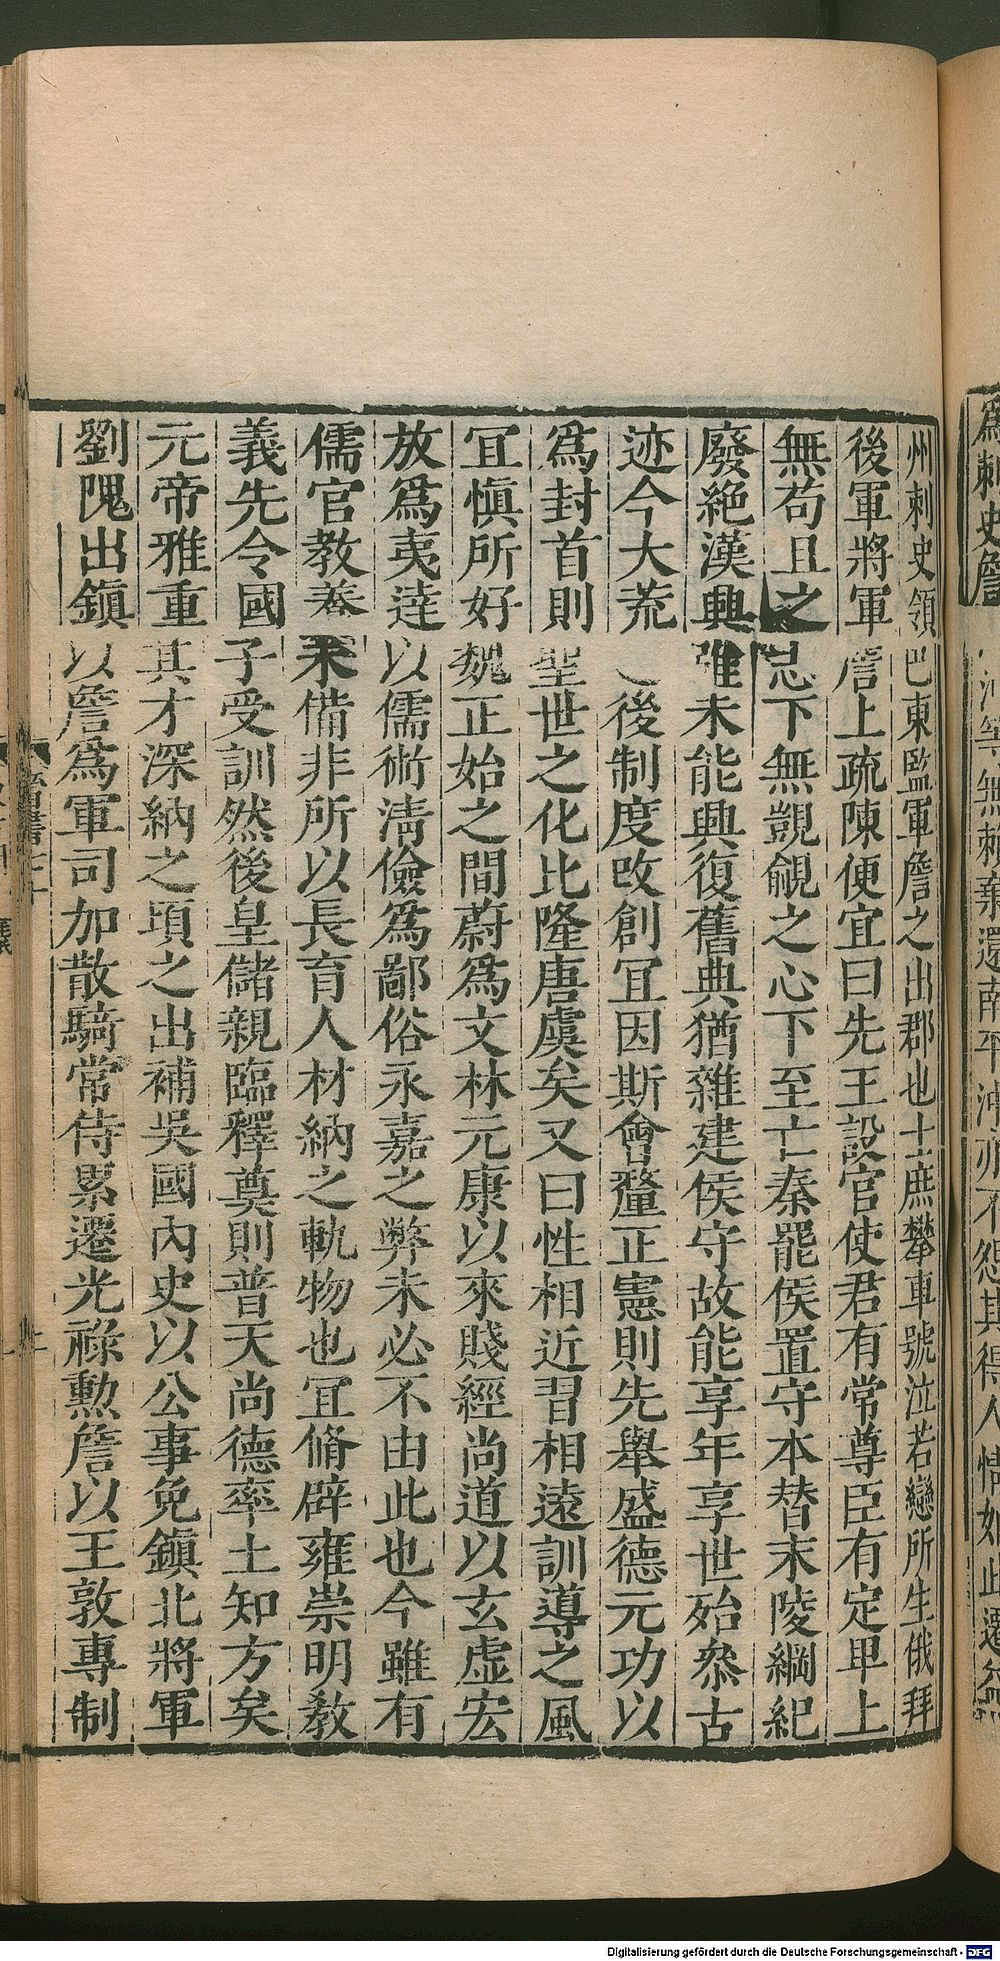 州刺史領巴東監軍詹之出郡也士庶攀車號泣若戀所生俄拜
後軍將軍詹上疏陳便宜曰先王設官使君有常尊臣有定卑上
無苟且之志下無覬覦之心下至亡秦罷侯置守本替末陵綱紀
廢絶漢興雖未能興復舊典猶雜建侯守故能享年享世殆叅古
迹今大荒之後制度改創冝因斯會釐正憲則先舉盛德元功以
爲封首則聖世之化比隆唐虞矣又曰性相近習相遠訓導之風
冝慎所好魏正始之間蔚爲文林元康以來賤經尚道以玄虚宏
放爲夷逹以儒術清儉爲鄙俗永嘉之弊未必不由此也今雖有
儒官教養未備非所以長育人材納之軌物也冝脩辟雍崇明教
義先令國子受訓然後皇儲親臨釋奠則普天尚德率土知方矣
元帝雅重其才深納之頃之出補吳國内史以公事免鎮北將軍
劉隗出鎮以詹爲軍司加散騎常侍累遷光祿勲詹以王敦專制
Digitalisierung gefördert durch die Deutsche Forschungsgemeinschaft - DFG